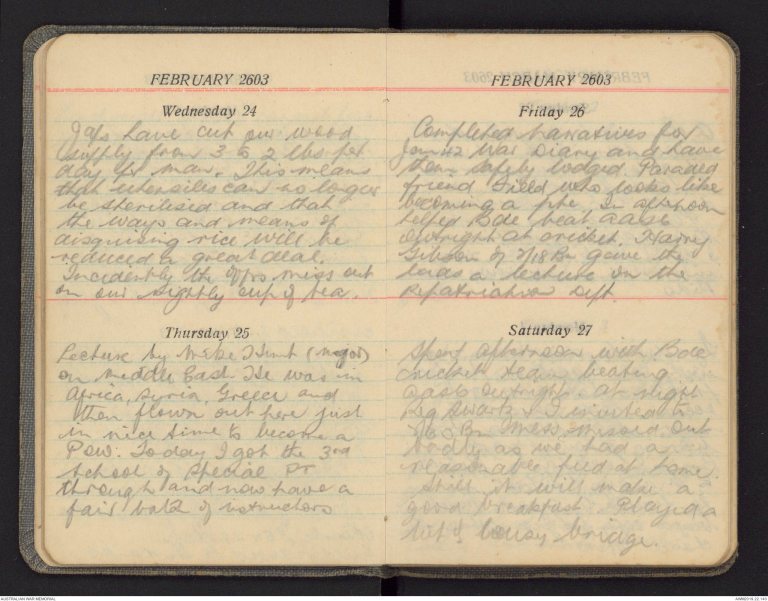 FEBRUARY 2603
Wednesday 24
Japs have cut our wood
supply from 3 to 2 lbs per
day per man. This means
that utensiles can no longer
be sterilised and that
the ways and means of
disguising rice will be
reduced a great deal.
Incidently the offrs miss out
on our nightly cup of tea.
Thursday 25
Lecture by Mike Hunt (Major)
on Middle East. He was in
Africa, Syria, Greece and
then flown out here just
in nice time to become a
POW. Today I got the 3rd
School of Special PT
through and now have a
fair batch of instructors
FEBRUARY 2603
Friday 26
Completed narratives for
Jan 42 War Diary and have
them safely lodged. Paraded
friend who looks like
becoming a pte. In afternoon
helped Bde beat AASC
outright at cricket. Harry
Gibson of 2/18 Bn gave the
lads a lecture on the
Repatriation Dept.
Saturday 27
Spent afternoon with Bde
cricket team beating
AASC outright. At night
Reg Swartz & I invited to
Bn Mess. Missed out
badly as we had a
reasonable feed at home.
Still it will make a
good breakfast. Played a
bit of lousy bridge.
AUSTRALIAN WAR MEMORIAL